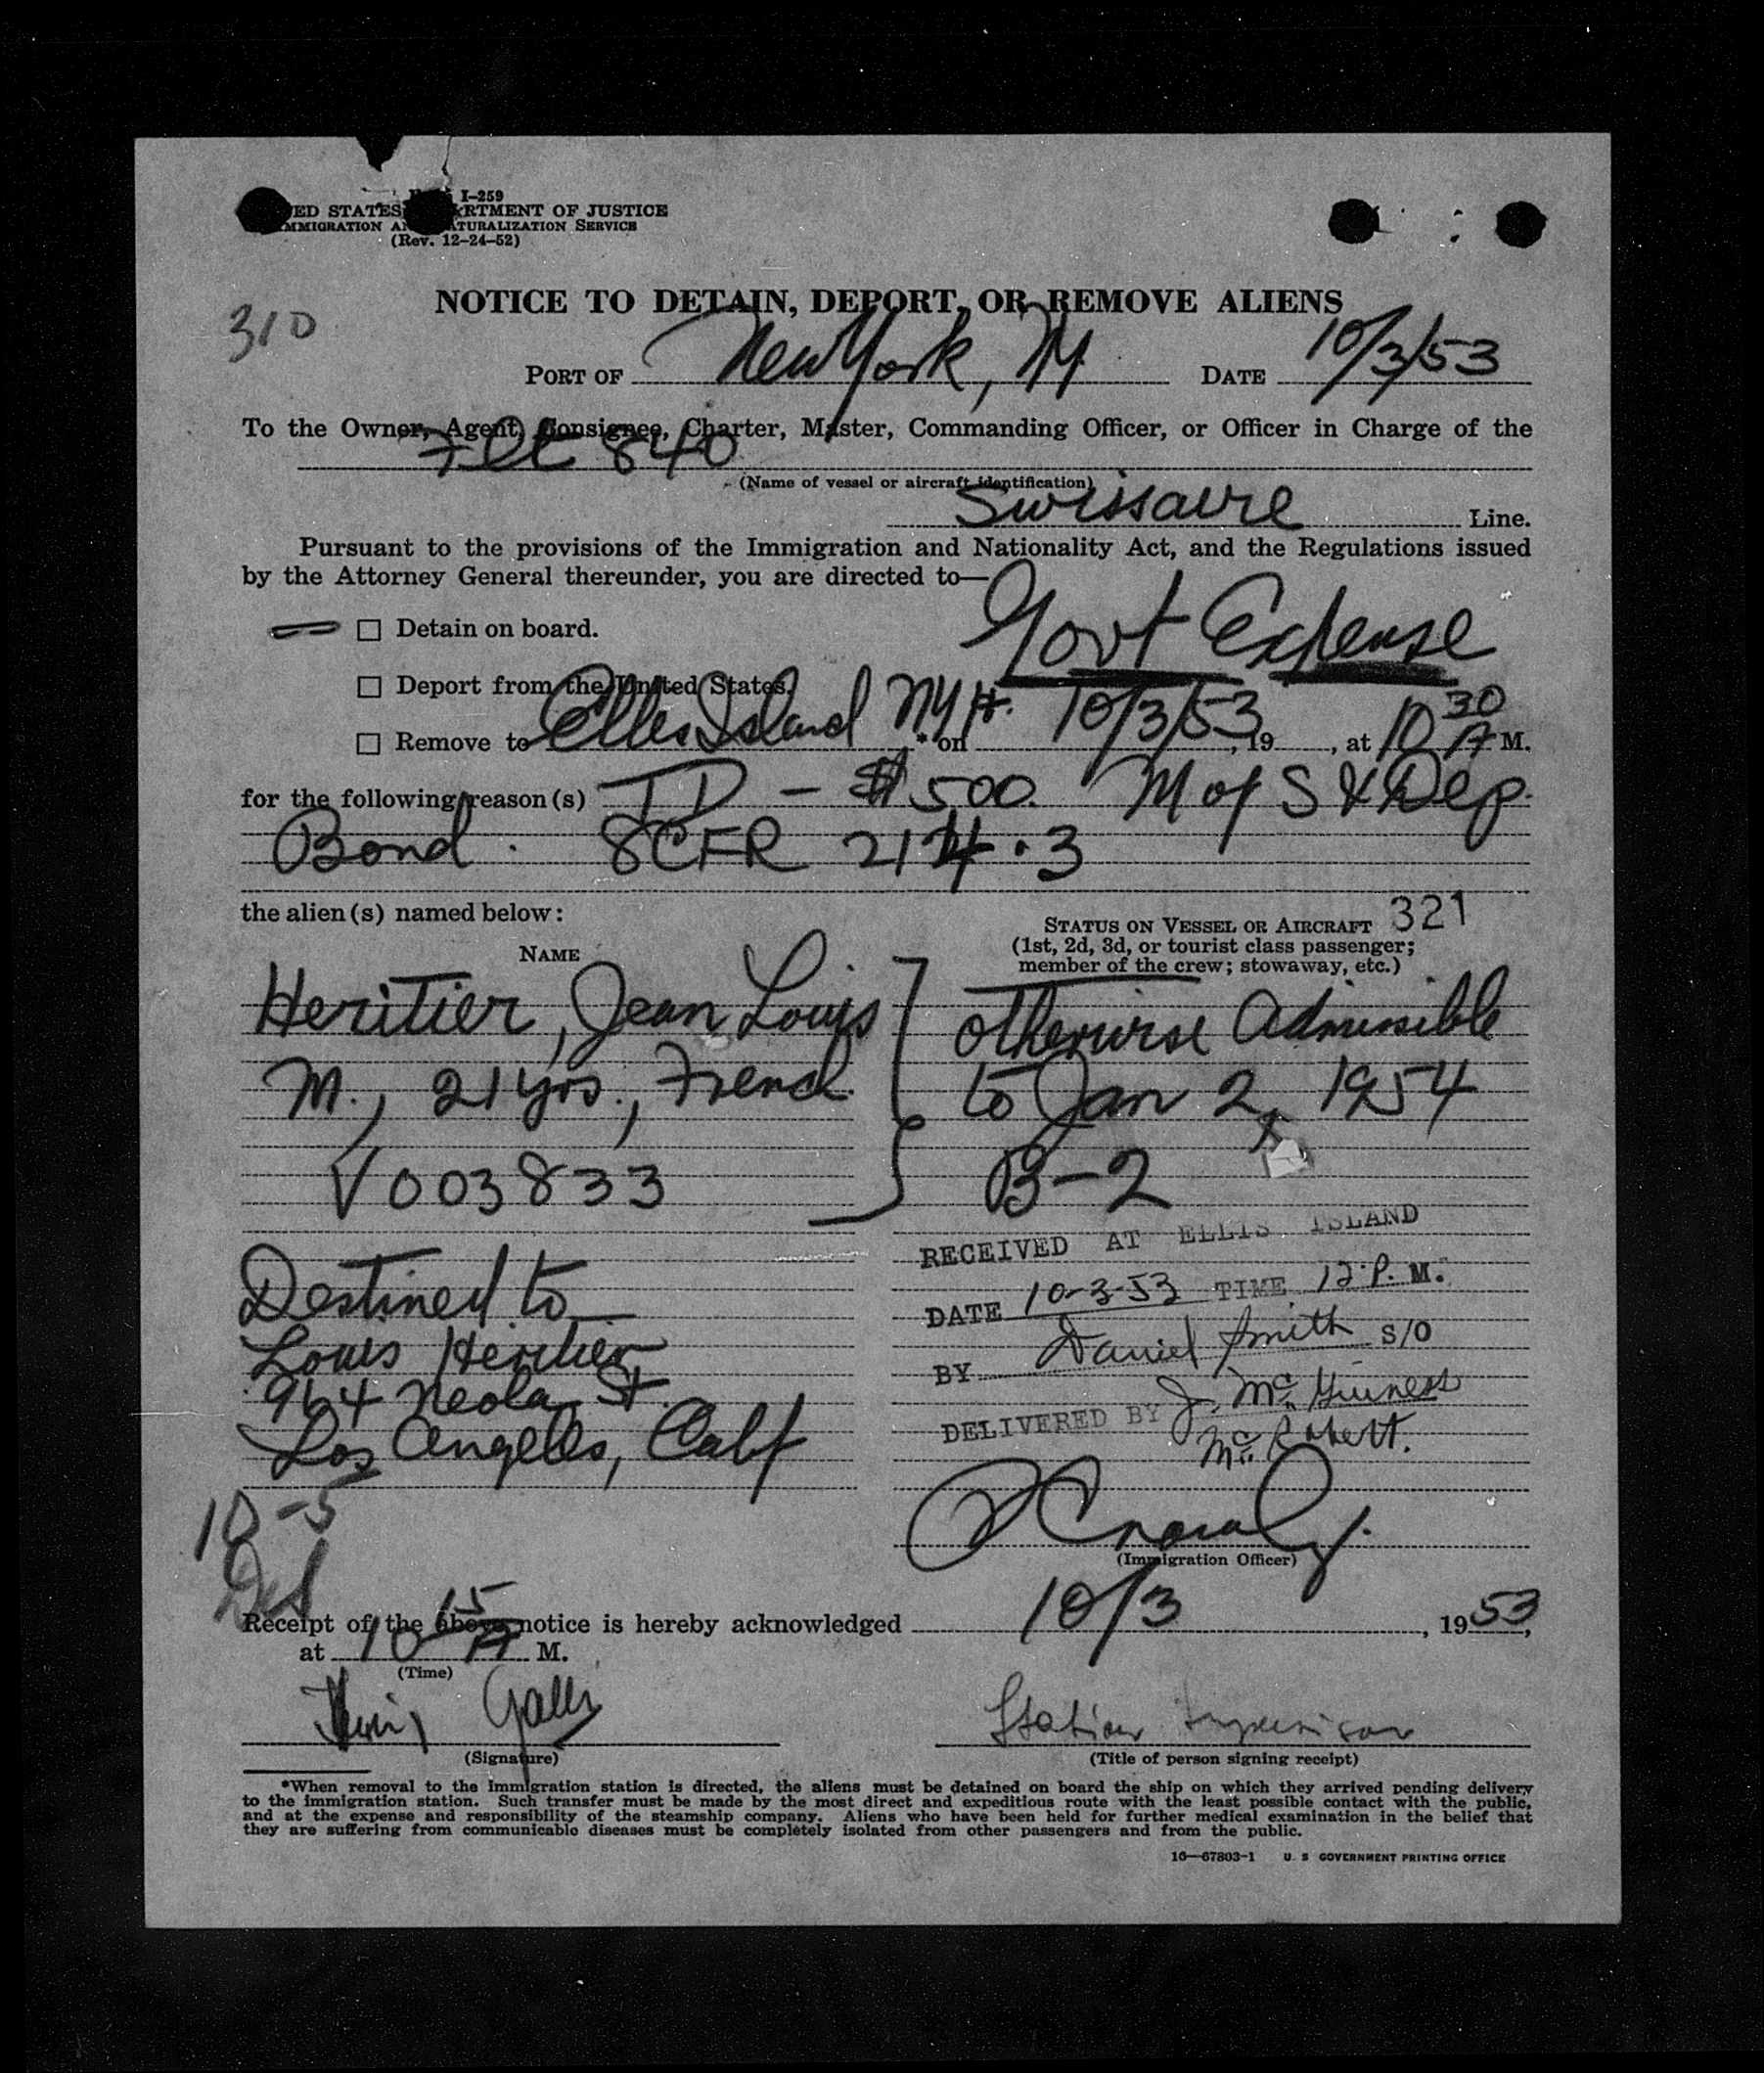 I-259
ED STATES RTMENT OF JUSTICE
MMIGRATION A ATURALIZATION SERVICE
(Rev. 12-24-52)
310
NOTICE TO DETAIN, DEPORT, OR REMOVE ALIENS
PORT OF New York, NY DATE 10/3/53
To the Owner, Agent, Consignee, Charter, Master, Commanding Officer, or Officer in Charge of the
Flt 840
(Name of vessel or aircraft identification)
Swissaire Line.
Pursuant to the provisions of the Immigration and Nationality Act, and the Regulations issued
by the Attorney General thereunder, you are directed to—
Govt Expense
☐ Detain on board.
☐ Deport from the United States.
☐ Remove to Ellis Island NYH. * on 10/3/53, 19, at 10 30 A M.
for the following reason(s) TD - $500. M of S & Dep.
Bond. 8CFR 214.3
the alien(s) named below:
STATUS ON VESSEL OR AIRCRAFT 321
(1st, 2d, 3d, or tourist class passenger;
member of the crew; stowaway, etc.)
NAME
Heritier, Jean Louis
M., 21 yrs., French
V003833
Otherwise Admissible
to Jan 2, 1954
B-2
Destined to
Louis Heritier
964 Neola St.
Los Angeles, Calif
RECEIVED AT ELLIS ISLAND
DATE 10-3-53 TIME 12 P. M.
BY Daniel Smith S/O
DELIVERED BY J. McGuiness
10-5
Def
(Immigration Officer)
Receipt of the above notice is hereby acknowledged 10/3, 1953,
at 10 15 A M.
(Time)
Galli
(Signature)
Station Supervisor
(Title of person signing receipt)
*When removal to the immigration station is directed, the aliens must be detained on board the ship on which they arrived pending delivery
to the immigration station. Such transfer must be made by the most direct and expeditious route with the least possible contact with the public,
and at the expense and responsibility of the steamship company. Aliens who have been held for further medical examination in the belief that
they are suffering from communicable diseases must be completely isolated from other passengers and from the public.
16—67803-1 U. S GOVERNMENT PRINTING OFFICE